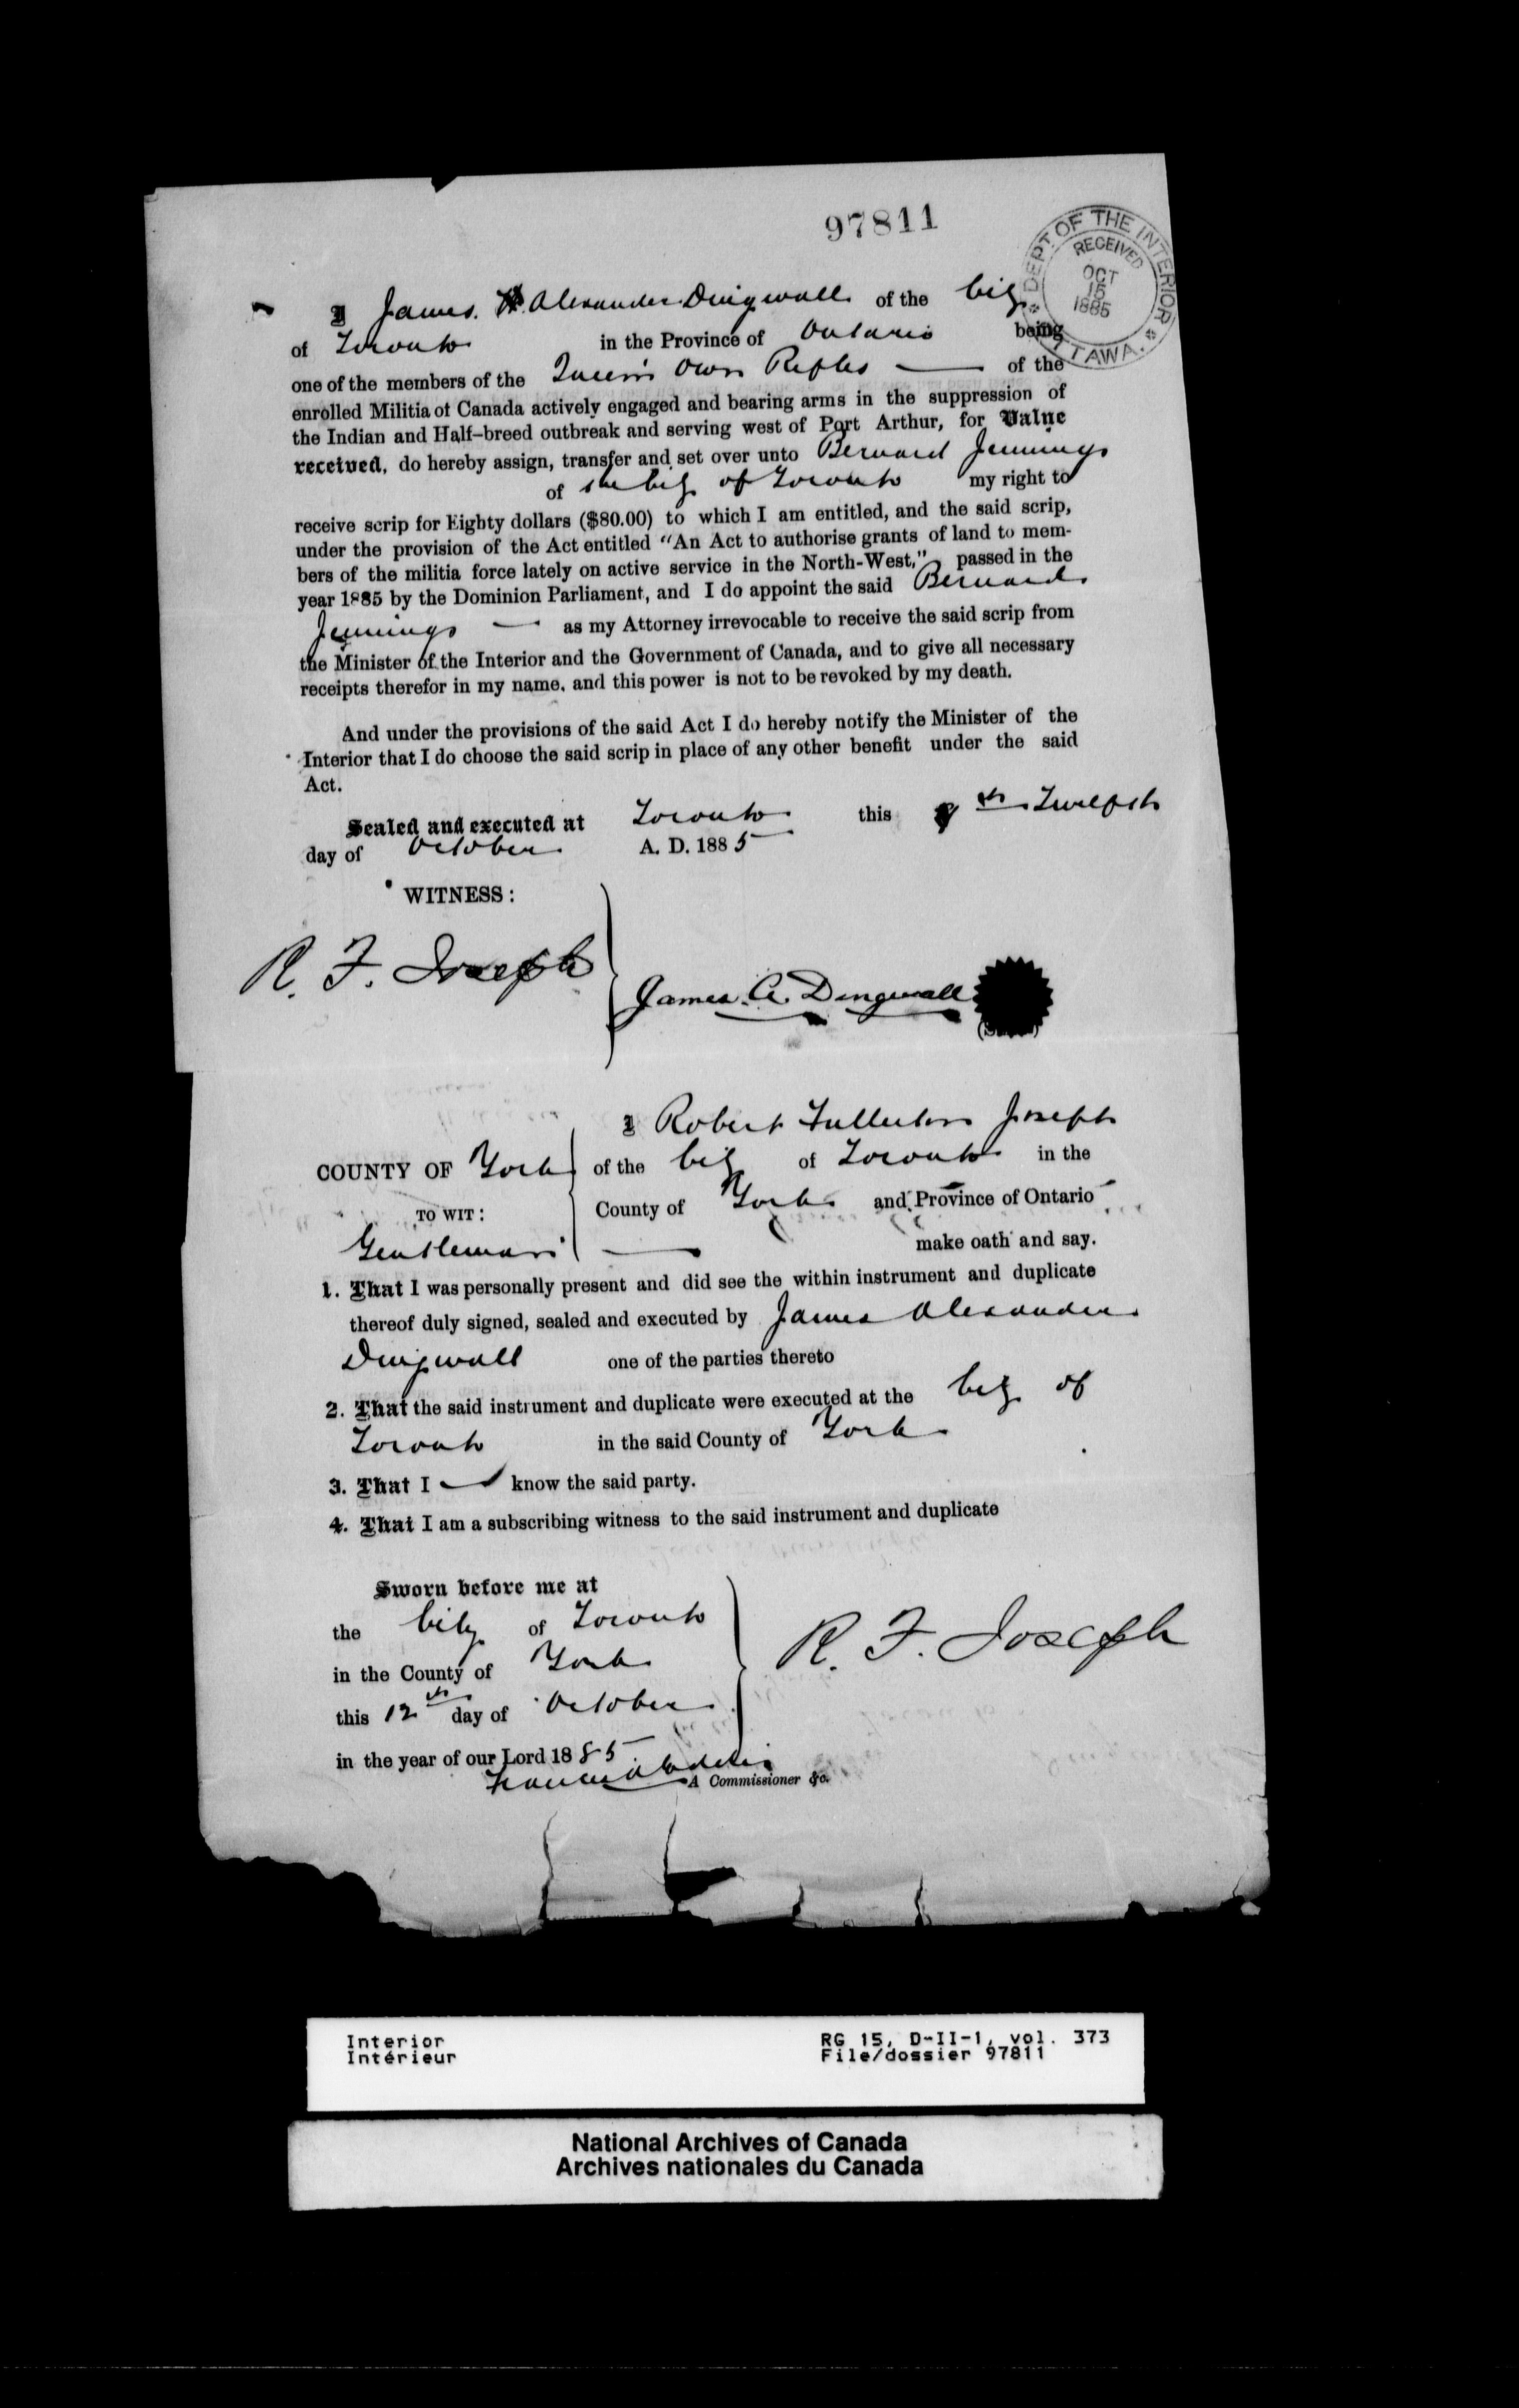 97811
DEPT. OF THE INTERIOR
RECEIVED
OCT
15
1885
OTTAWA.
I James Alexander Dingwall of the City
of Toronto in the Province of Ontario being
one of the members of the Queen's Own Rifles — of the
enrolled Militia of Canada actively engaged and bearing arms in the suppression of
the Indian and Half-breed outbreak and serving west of Port Arthur, for Value
received, do hereby assign, transfer and set over unto Bernard Jennings
of the City of Toronto my right to
receive scrip for Eighty dollars ($80.00) to which I am entitled, and the said scrip,
under the provision of the Act entitled "An Act to authorise grants of land to mem-
bers of the militia force lately on active service in the North-West," passed in the
year 1885 by the Dominion Parliament, and I do appoint the said Bernard
Jennings — as my Attorney irrevocable to receive the said scrip from
the Minister of the Interior and the Government of Canada, and to give all necessary
receipts therefor in my name, and this power is not to be revoked by my death.
And under the provisions of the said Act I do hereby notify the Minister of the
Interior that I do choose the said scrip in place of any other benefit under the said
Act.
Sealed and executed at Toronto this Twelfth
day of October A. D. 1885
WITNESS:
R. F. Joseph
James. A. Dingwall
I Robert Fullerton Joseph
COUNTY OF York of the City of Toronto in the
TO WIT: County of York and Province of Ontario
Gentleman — make oath and say.
1. That I was personally present and did see the within instrument and duplicate
thereof duly signed, sealed and executed by James Alexander
Dingwall one of the parties thereto
2. That the said instrument and duplicate were executed at the City of
Toronto in the said County of York
3. That I — know the said party.
4. That I am a subscribing witness to the said instrument and duplicate
Sworn before me at
the City of Toronto
in the County of York
this 12th day of October
in the year of our Lord 1885
R. F. Joseph
A Commissioner &c.
Interior RG 15, D-II-1, vol. 373
Intérieur File/dossier 97811
National Archives of Canada
Archives nationales du Canada